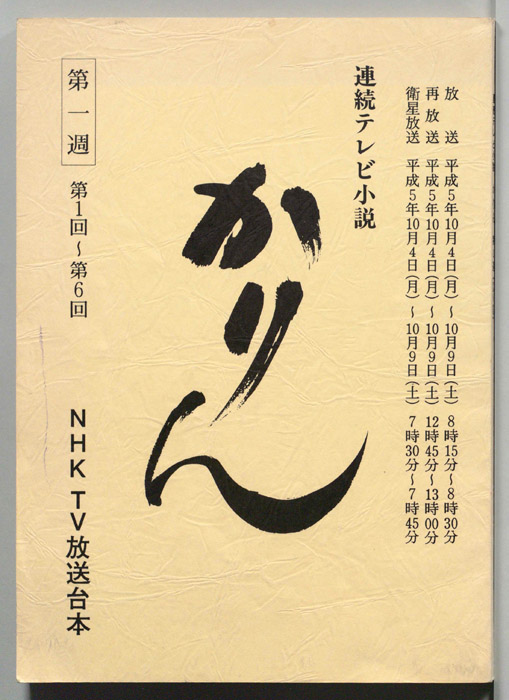 放送 平成5年10月4日(月)~10月9日(土) 8時15分~8時30分
再放送 平成5年10月4日(月)~10月9日(土) 12時45分~13時00分
衛星放送 平成5年10月4日(月)~10月9日(土) 7時30分~7時45分
連続テレビ小説
かりん
第一週 第1回~第6回
NHK TV放送台本